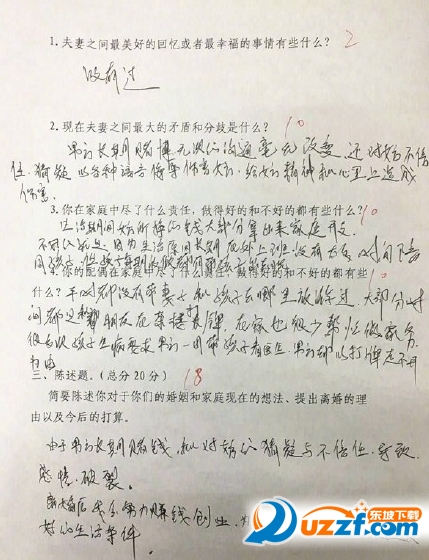 1.夫妻之间最美好的回忆或者最幸福的事情有些什么? 2
没有过
2.现在夫妻之间最大的矛盾和分歧是什么? 10
男方长期赌博无法沟通毫无改变,还对女方不信
任,猜疑 以各种语言侮辱伤害女方,给女方精神和心里上造成
伤害
3.你在家庭中尽了什么责任,做得好的和不好的都有些什么? 10
生活期间女方所得的钱大部分拿出来家庭开支
因为生活原因长期在外上班没有太多时间
4.你的配偶在家庭中尽了什么责任,做得好的和不好的都有些
什么? 10 平时都没有带妻子和孩子去哪里放松过,大部分时
间都是帮朋友在茶楼打牌,在家也很少帮忙做家务,
孩子生病要求男方一同带孩子看医生,男方都以打牌走不开
为由
三、陈述题.(总分20分) 18
简要陈述你对于你们的婚姻和家庭现在的想法、提出离婚的理
由以及今后的打算。
由于男方长期赌钱,和对女方的猜疑与不信任,导致
感情破裂。
离婚后 努力赚钱创业,
好的生活条件。
东坡下载
uzzf.com